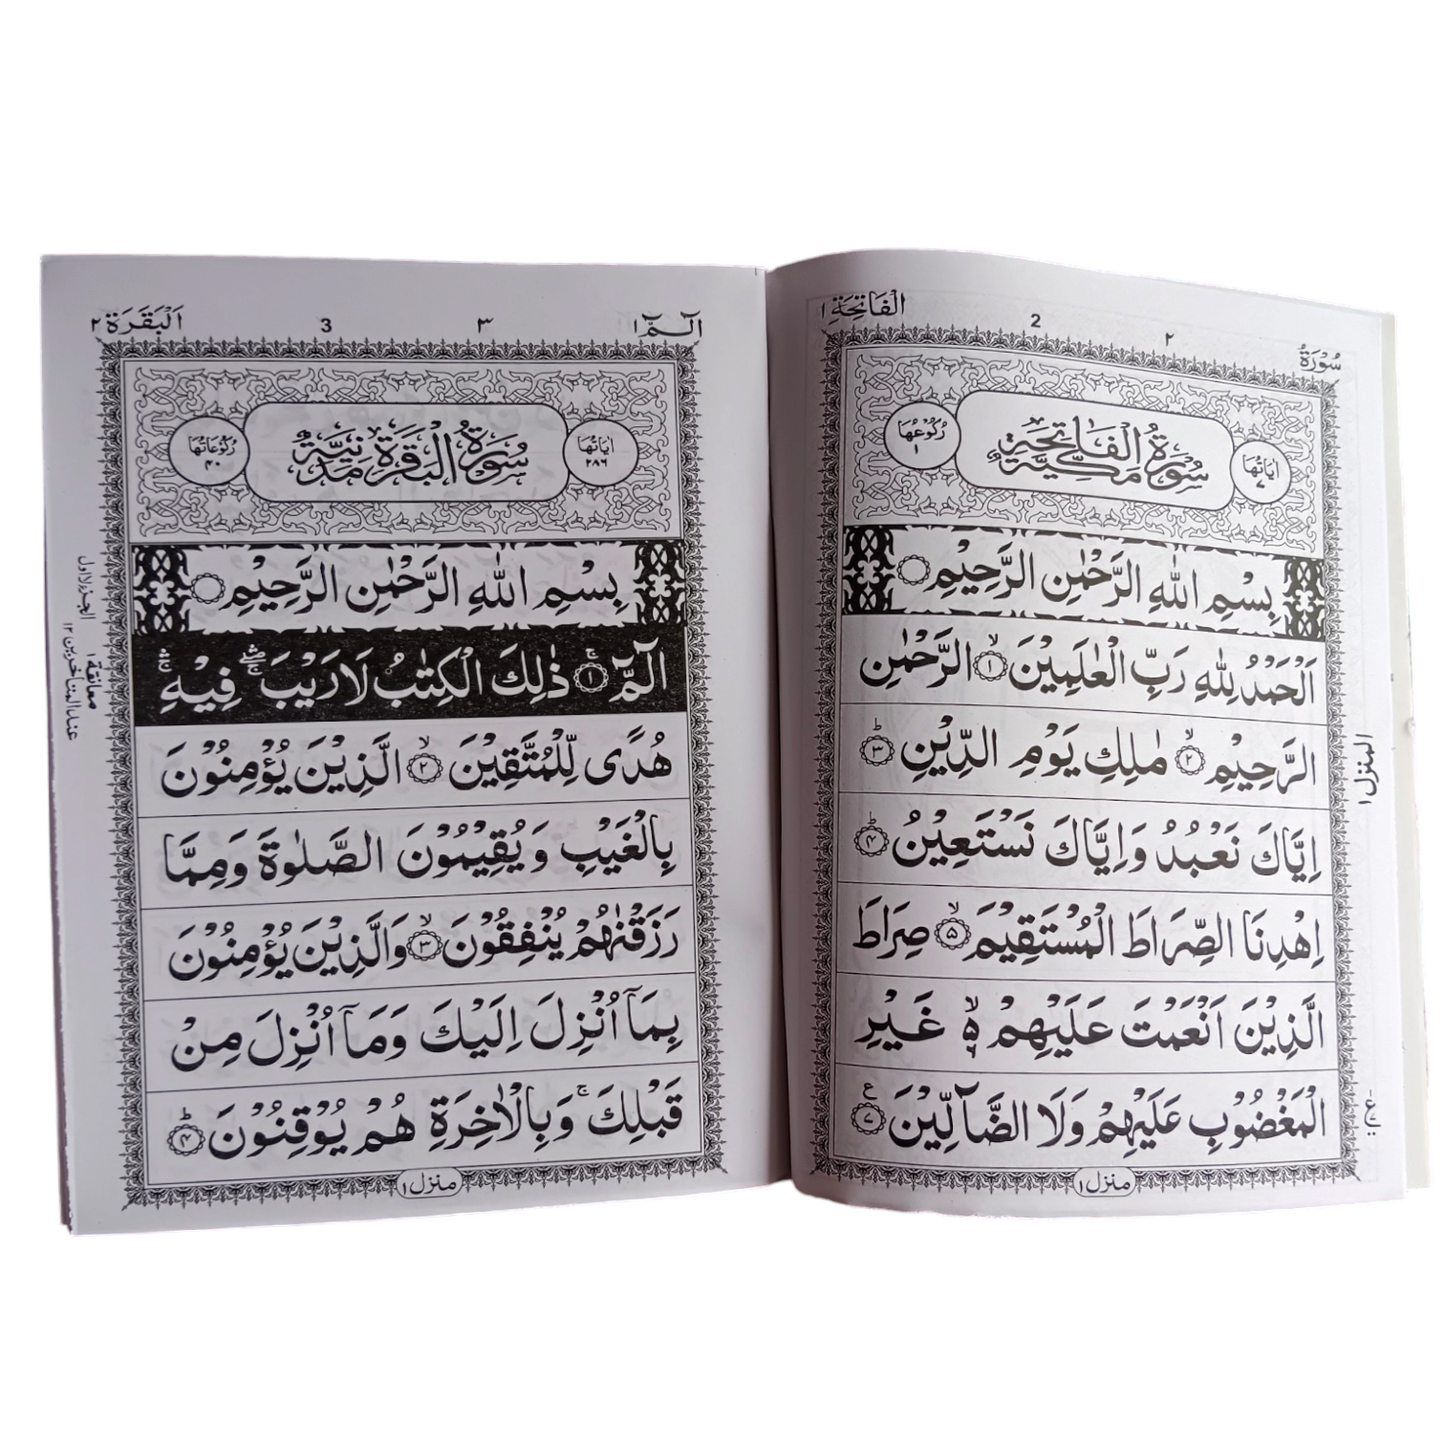 سُوْرَةُ ٢ 2 اَلْفَاتِحَةِ ١
اٰيَاتُهَا ٧
سُوْرَةُ الْفَاتِحَةِ مَكِّيَّةٌ
رُكُوْعُهَا ١
بِسْمِ اللّٰهِ الرَّحْمٰنِ الرَّحِيْمِ
اَلْحَمْدُ لِلّٰهِ رَبِّ الْعٰلَمِيْنَ ۙ ١ الرَّحْمٰنِ
الرَّحِيْمِ ۙ ٢ مٰلِكِ يَوْمِ الدِّيْنِ ؕ ٣
اِيَّاكَ نَعْبُدُ وَاِيَّاكَ نَسْتَعِيْنُ ؕ ٤
اِهْدِنَا الصِّرَاطَ الْمُسْتَقِيْمَ ۙ ٥ صِرَاطَ
الَّذِيْنَ اَنْعَمْتَ عَلَيْهِمْ ۙ ٦ غَيْرِ
الْمَغْضُوْبِ عَلَيْهِمْ وَلَا الضَّآلِّيْنَ ٧ ع
منزل ١
المنزل ١
الٓمّٓ ١ ٣ 3 اَلْبَقَرَة ٢
اٰيَاتُهَا ٢٨٦
سُوْرَةُ الْبَقَرَةِ مَدَنِيَّةٌ
رُكُوْعَاتُهَا ٤٠
بِسْمِ اللّٰهِ الرَّحْمٰنِ الرَّحِيْمِ
الٓمّٓ ۚ ١ ذٰلِكَ الْكِتٰبُ لَا رَيْبَ ۛۖۚ فِيْهِ ۛۚ
هُدًى لِّلْمُتَّقِيْنَ ۙ ٢ الَّذِيْنَ يُؤْمِنُوْنَ
بِالْغَيْبِ وَيُقِيْمُوْنَ الصَّلٰوةَ وَمِمَّا
رَزَقْنٰهُمْ يُنْفِقُوْنَ ۙ ٣ وَالَّذِيْنَ يُؤْمِنُوْنَ
بِمَآ اُنْزِلَ اِلَيْكَ وَمَآ اُنْزِلَ مِنْ
قَبْلِكَ ۚ وَبِالْاٰخِرَةِ هُمْ يُوْقِنُوْنَ ؕ ٤
منزل ١
الجزء الاول
معانقة ١
عند المتاخرين ١٢